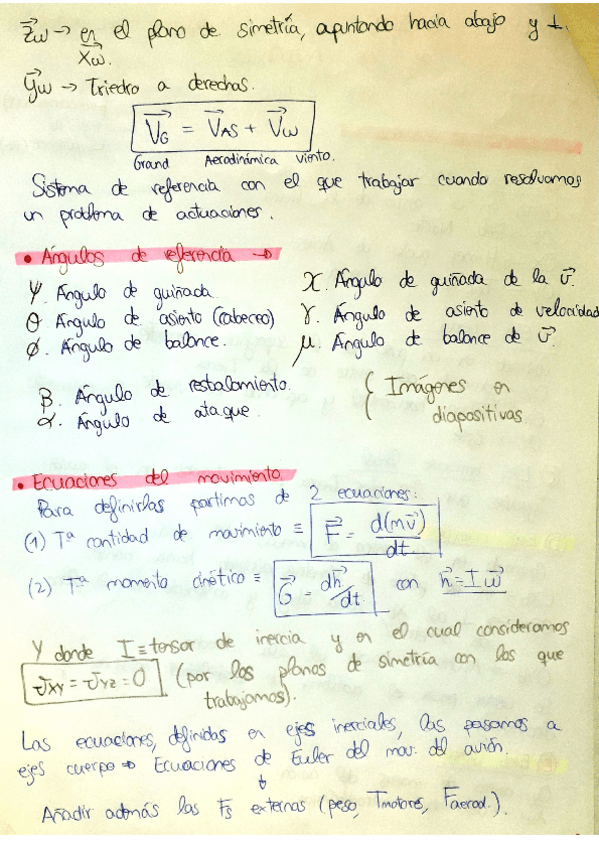 z⃗ω → en el plano de simetría, apuntando hacia abajo y ⊥
x⃗ω.
y⃗ω → Triedro a derechas.
V⃗G = V⃗AS + V⃗ω
Grand Aerodinámica viento.
Sistema de referencia con el que trabajar cuando resolvamos
un problema de actuaciones.
• Ángulos de referencia →
Ψ. Ángulo de guiñada
θ. Ángulo de asiento (cabeceo)
φ. Ángulo de balance.
χ. Ángulo de guiñada de la v⃗.
γ. Ángulo de asiento de velocidad
μ. Ángulo de balance de v⃗.
β. Ángulo de resbalamiento.
α. Ángulo de ataque.
{ Imágenes en
diapositivas
• Ecuaciones del movimiento
Para definirlas partimos de 2 ecuaciones:
(1) Tª cantidad de movimiento ≡ F⃗ = d(mv⃗)/dt
(2) Tª momento cinético ≡ G⃗ = dh⃗/dt con h⃗ = I ω⃗
Y donde I ≡ tensor de inercia y en el cual consideramos
JXY = JYZ = 0 (por los planos de simetría con los que
trabajamos).
Las ecuaciones, definidas en ejes inerciales, las pasamos a
ejes cuerpo → Ecuaciones de Euler del mov. del avión.
↓
Añadir además las Fs externas (peso, Tmotores, Faerod.).